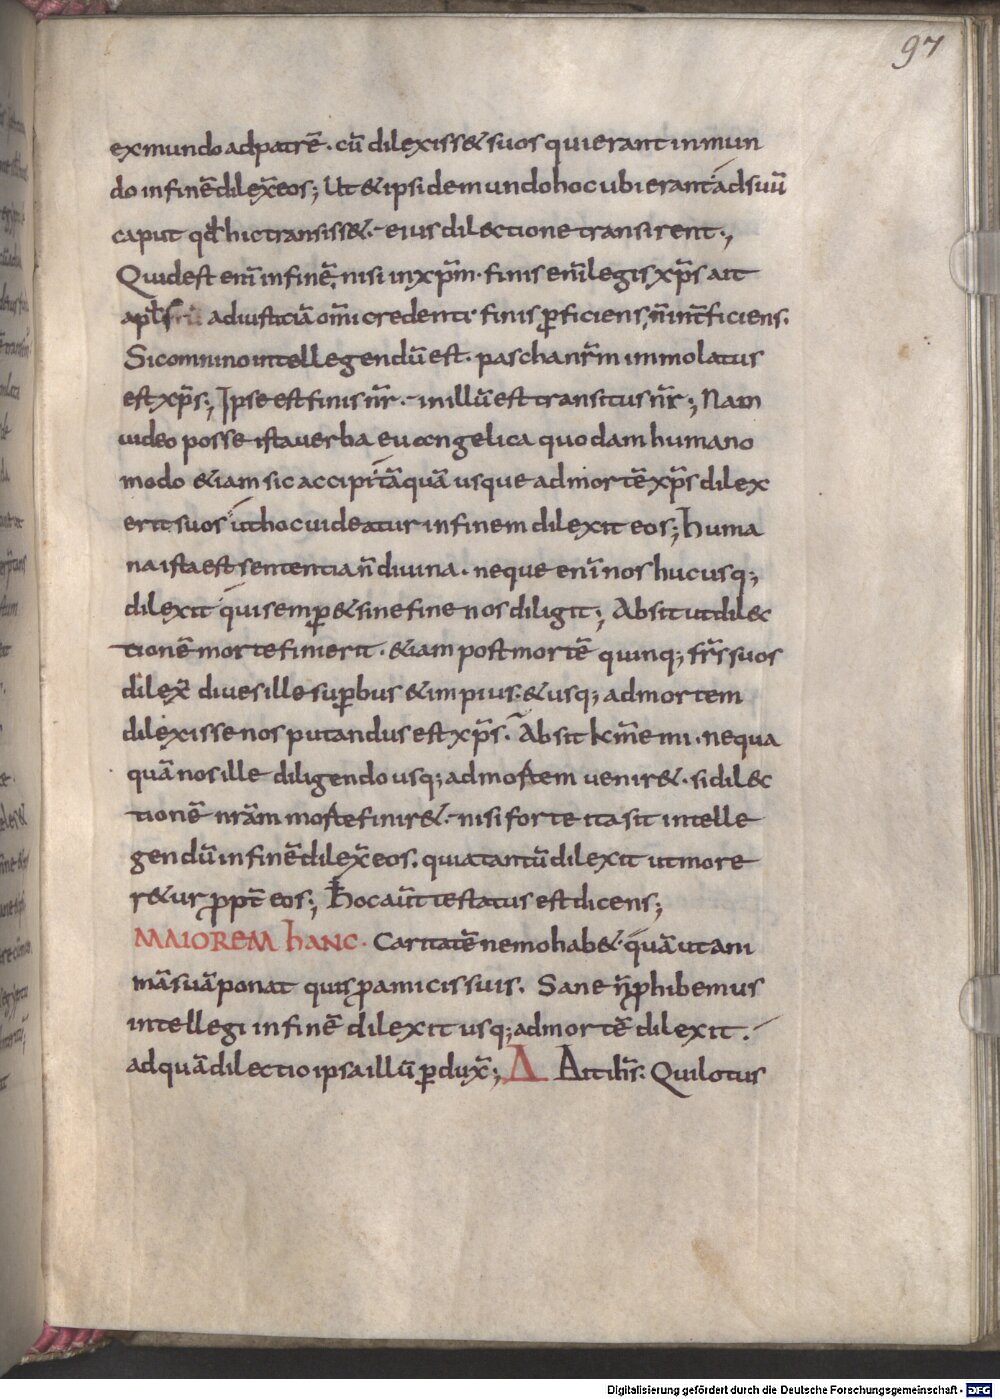 97
ex mundo ad patrē · cū dilexiss& suos qui erant in mun
do in finē dilex̄ eos; Ut & ipsi de mundo hoc ubi erant ad suū
caput qd̄ hic transiss& · eius dilectione transirent ·,
Quid est enī in finē, nisi in xp̄m · finis enī legis xp̄s ait
apl̄s ad iusticiā om̄i credenti · finis p̄ficiens, n̄ int̄ficiens.
Sic omnino intellegendū est · pascha nr̄m immolatus
est xp̄s; Ipse est finis nr̄ · in illū est transitus nr̄; Nam
video posse ista verba euangelica quodam humano
modo &iam sic accipi tāquā usque ad mortē xp̄s dilex
erit suos ut hoc uideatur in finem dilexit eos; huma
na ista est sententia n̄ diuina · neque enī nos hucusq;
dilexit qui semp̄ & sine fine nos diligit; Absit ut dilec
tionē morte finierit · &iam post mortē quinq; fr̄s suos
dilex̄ diues ille sup̄bus & impius · & usq; ad mortem
dilexisse nos putandus est xp̄s. Absit km̄e mi · nequa
quā nos ille diligendo usq; ad mortem uenir& · si dilec
tionē nrām morte finir& · nisi forte ita sit intelle
gendū in finē dilex̄ eos. quia tantū dilexit ut more
r&ur ppt̄ eos; Hoc aūt testatus est dicens;
MAIOREM hANC · Caritatē nemo hab& · quā ut ani
mā suā ponat quis p amicis suis. Sane n̄ phibemus
intellegi in finē dilexit usq; ad mortē dilexit ·
ad quā dilectio ipsa illū p̄dux̄; A Ait ih̄s · Qui lotus
Digitalisierung gefördert durch die Deutsche Forschungsgemeinschaft - DFG